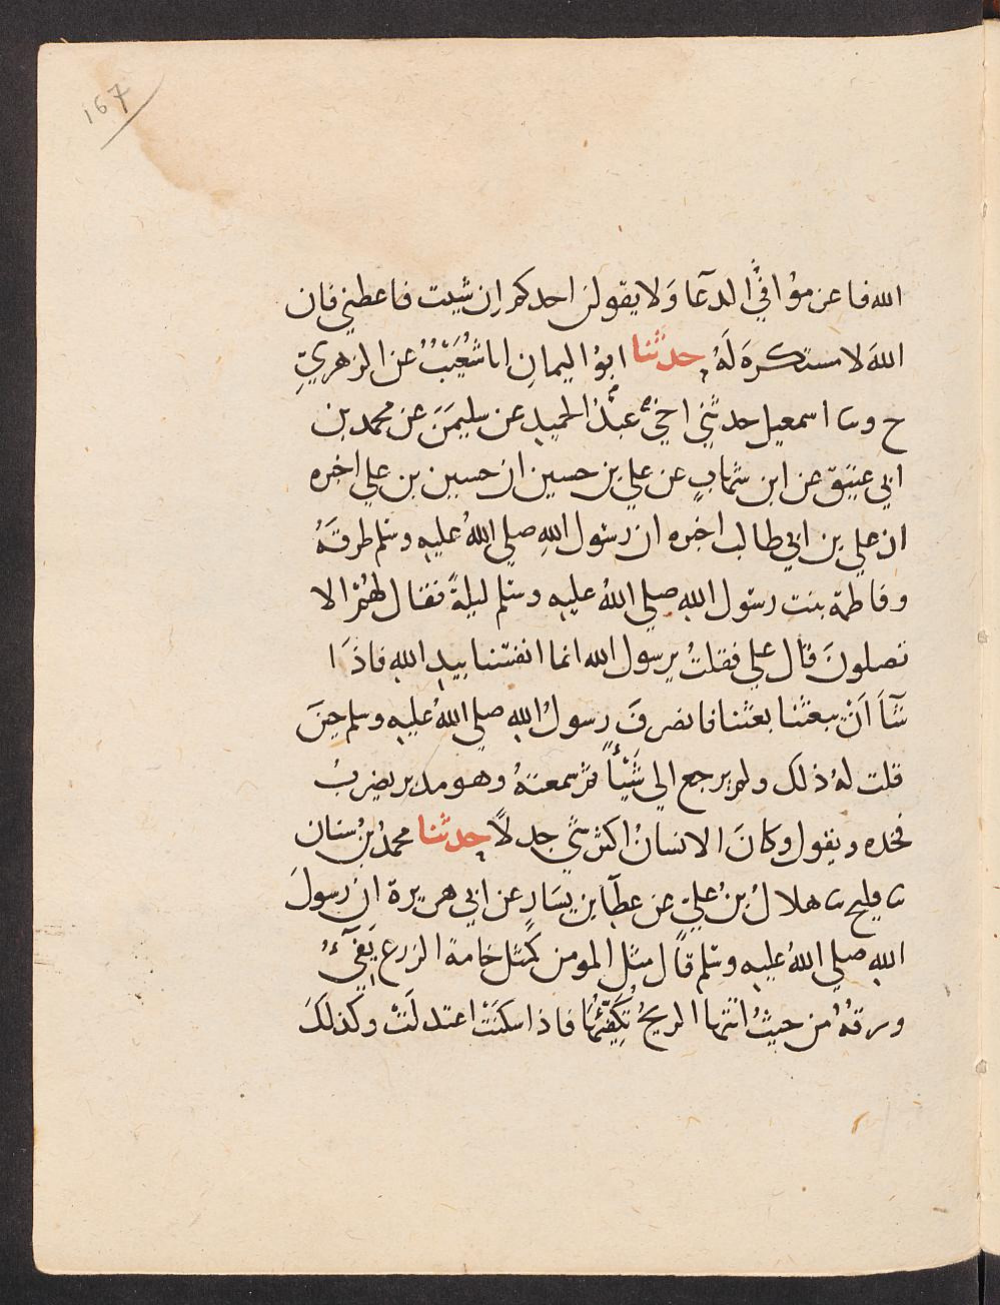 167
الله فاعزموا في الدعا ولا يقولن احدكم ان شيت فاعطني فان
الله لا مستكره له حدثنا ابو اليمان انا شعيب عن الزهري
ح وثنا اسمعيل حدثني اخي عبد الحميد عن سليمن عن محمد بن
ابي عتيق عن ابن شهاب عن علي بن حسين ان حسين بن علي اخبره
ان علي بن ابي طالب اخبره ان رسول الله صلي الله عليه وسلم طرقه
وفاطمة بنت رسول الله صلي الله عليه وسلم ليلة فقال لهم الا
تصلون قال علي فقلت يرسول الله انما انفسنا بيد الله فاذا
شآ ان يبعثنا بعثنا فانصرف رسول الله صلي الله عليه وسلم حين
قلت له ذلك ولم يرجع الي شيئا ثم سمعته وهو مدبر يضرب
فخذه ويقول وكان الانسان اكثر شي جدلا حدثنا محمد بن سنان
ثنا فليح ثنا هلال بن علي عن عطآ بن يسار عن ابي هريرة ان رسول
الله صلي الله عليه وسلم قال مثل المومن كمثل خامة الزرع يفيء
ورقه من حيث اتتها الريح تكفئها فاذا سكنت اعتدلت وكذلك